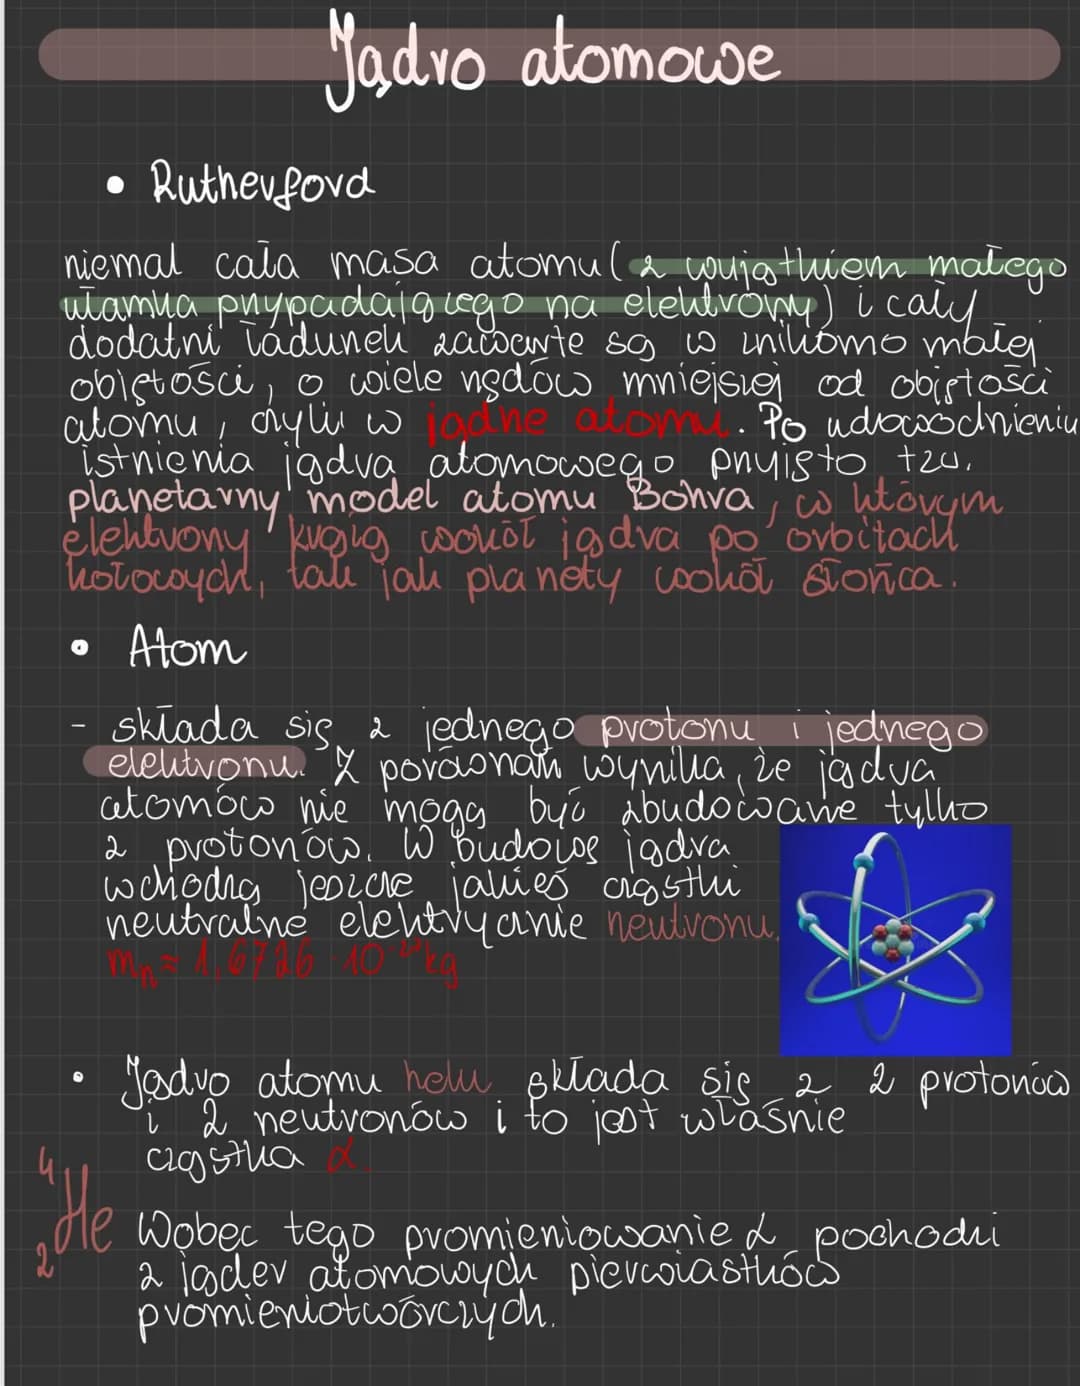 Jądro atomowe
• Rutherford
niemal cała masa atomu (z wyjątkiem małego
ułamka przypadającego na elektrony) i cały
dodatni ładunek zawarte są w znikomo małej
objętości, o wiele rzędów mniejszej od objętości
atomu, czyli w jądrze atomu. Po udowodnieniu
istnienia jądra atomowego przyjęto tzw.
planetarny model atomu Bohra, w którym
elektrony krążą wokół jądra po orbitach
kołowych, tak jak planety wokół słońca.
• Atom
- składa się z jednego protonu i jednego
elektronu. Z porównań wynika, że jądra
atomów nie mogą być zbudowane tylko
z protonów. W budowę jądra
wchodzą jeszcze jakieś cząstki
neutralne elektrycznie neutronu.
mₙ = 1,6726 · 10⁻²⁷ kg
• Jądro atomu helu składa się z 2 protonów
i 2 neutronów i to jest właśnie
cząstka α.
⁴₂He Wobec tego promieniowanie α pochodzi
z jąder atomowych pierwiastków
promieniotwórczych.